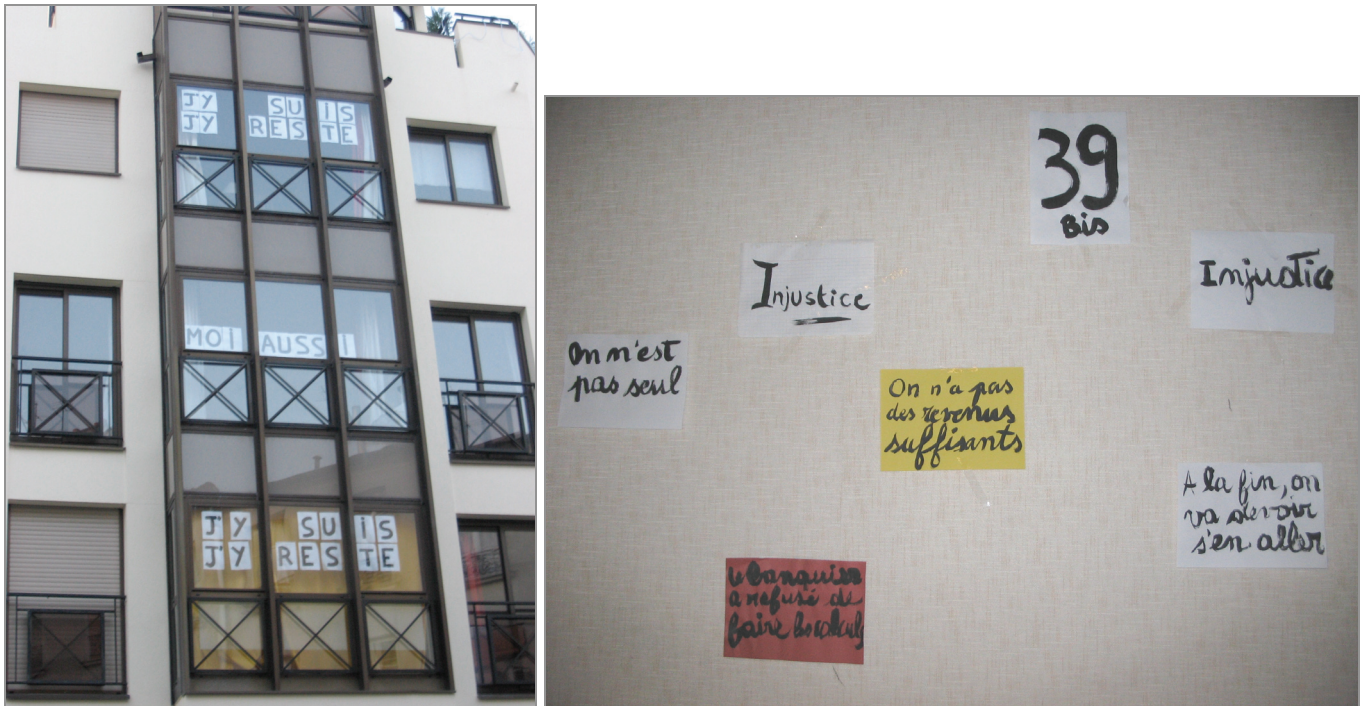 J'Y SUIS
J'Y RESTE
MOI AUSSI
J'Y SUIS
J'Y RESTE
39
Bis
Injustice
Injustice
On n'est
pas seul
On n'a pas
des revenus
suffisants
A la fin, on
va devoir
s'en aller
Le Banquier
a refusé de
faire les calculs